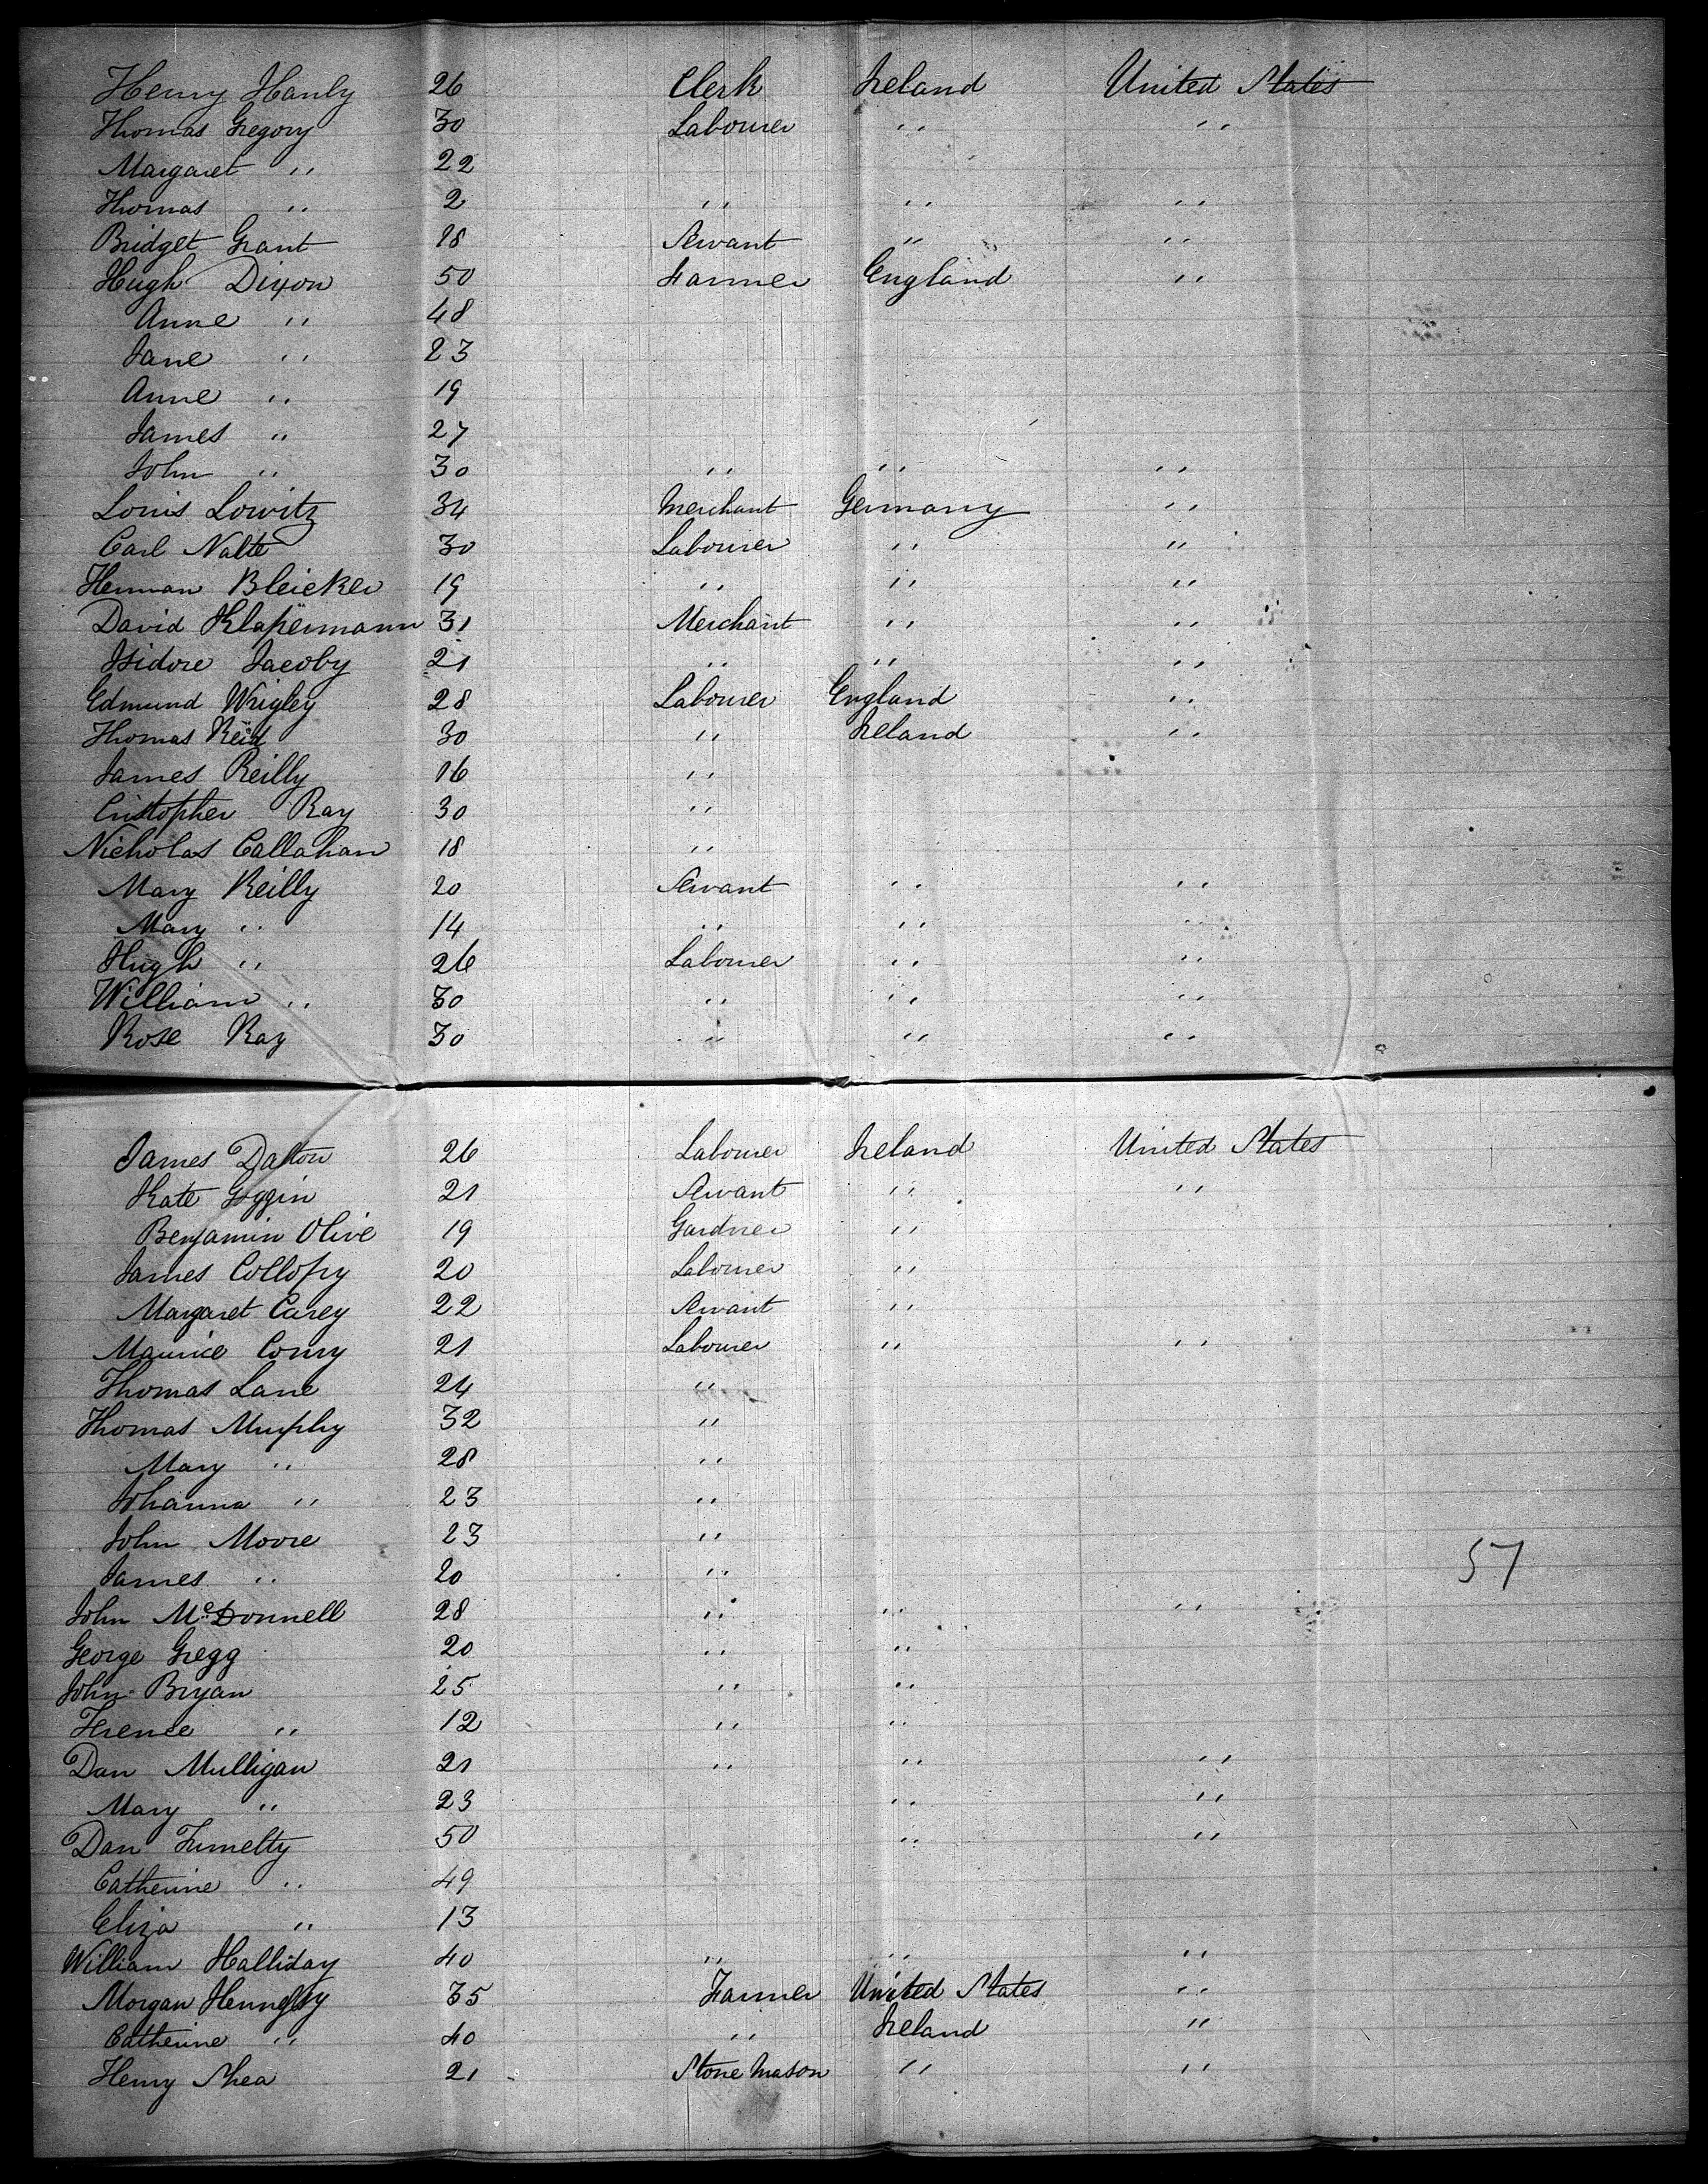 Henry Hanly 26 Clerk Ireland United States
Thomas Gregory 30 Labourer " "
Margaret " 22
Thomas " 2 " " "
Bridget Grant 18 Servant " "
Hugh Dixon 50 Farmer England "
Anne " 48
Jane " 23
Anne " 19
James " 27
John " 30 " " "
Louis Lowitz 34 Merchant Germany "
Carl Nalte 30 Labourer " "
Herman Bleicker 19 " " "
David Klapermann 31 Merchant " "
Isidore Jacoby 21 " " "
Edmund Wrigley 28 Labourer England "
Thomas Reid 30 " Ireland "
James Reilly 16 "
Cristopher Ray 30 "
Nicholas Callahan 18 "
Mary Reilly 20 Servant " "
Mary " 14 " " "
Hugh " 26 Labourer " "
William " 30 " " "
Rose Ray 30 " " "
James Dalton 26 Labourer Ireland United States
Kate Goggin 21 Servant " "
Benjamin Olive 19 Gardner "
James Collopy 20 Labourer "
Margaret Carey 22 Servant "
Maurice Conry 21 Labourer " "
Thomas Lane 24 "
Thomas Murphy 32 "
Mary " 28 "
Johanna " 23 "
John Moore 23 "
James " 20 "
57
John McDonnell 28 " " "
George Gregg 20 " "
John Bryan 25 " "
Terence " 12 " "
Dan Mulligan 21 " " "
Mary " 23 " "
Dan Tumelty 50 " "
Catherine " 49
Eliza " 13
William Halliday 40 " " "
Morgan Hennessy 35 Farmer United States "
Catherine " 40 " Ireland "
Henry Shea 21 Stone Mason " "